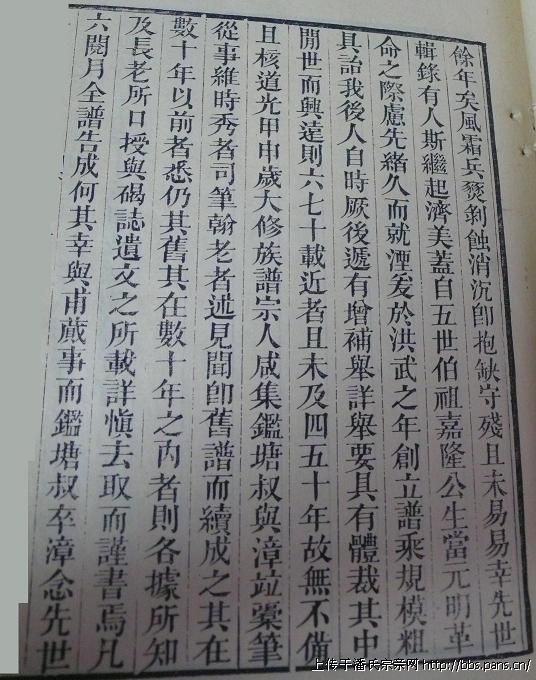 餘年矣風霜兵燹剝蝕消沉卽抱缺守殘且未易易幸先世
輯錄有人斯繼起濟美蓋自五世伯祖嘉隆公生當元明革
命之際慮先緒久而就湮爰於洪武之年創立譜乘規模粗
具詒我後人自時厥後遞有增補舉詳舉要具有體裁其中
閒世而興遠則六七十載近者且未及四五十年故無不備
且核道光甲申歲大修族譜宗人咸集鑑塘叔與漳竝橐筆
從事維時秀者司筆翰老者述見聞卽舊譜而續成之其在
數十年以前者悉仍其舊其在數十年之內者則各據所知
及長老所口授與碣誌遺文之所載詳慎去取而謹書焉凡
六閱月全譜告成何其幸與甫蕆事而鑑塘叔卒漳念先世
上传于潘氏宗亲网 http://bbs.pans.cn/